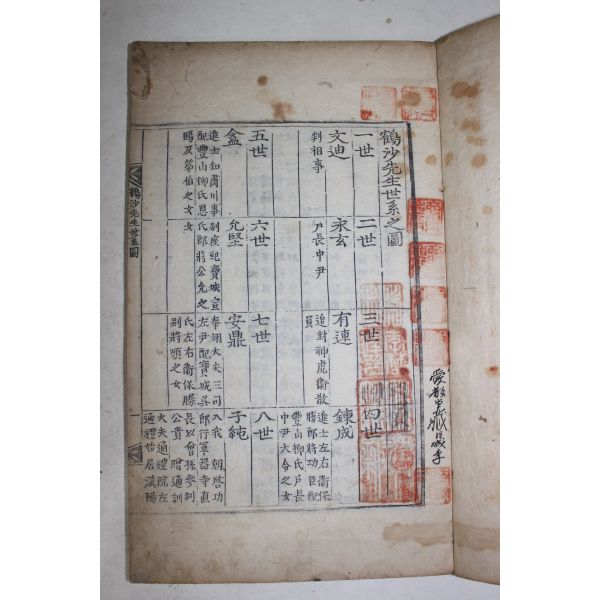 鶴沙先生世系之圖
一世
二世
三世
四世
文迪
判相事
永玄
戶長中尹
有連
追封神虎衛散
員
鍊成
進士左右衛保
勝郎將功臣配
豐山柳氏戶長
中尹大合之女
五世
六世
七世
八世
盒
進士知蘭川事
配豐山柳氏恩
賜及第伯之女
允堅
別座配寶城宣
氏郎將公允之
女
安鼎
奉翊大夫三司
左尹配寶城吳
氏左右衛保勝
別將順之女
子純
入我 朝啓功
郎行軍器寺直
長以曾孫參判
公貴 贈通訓
大夫通禮院左
通禮始居漢陽
鶴沙先生世系圖
一